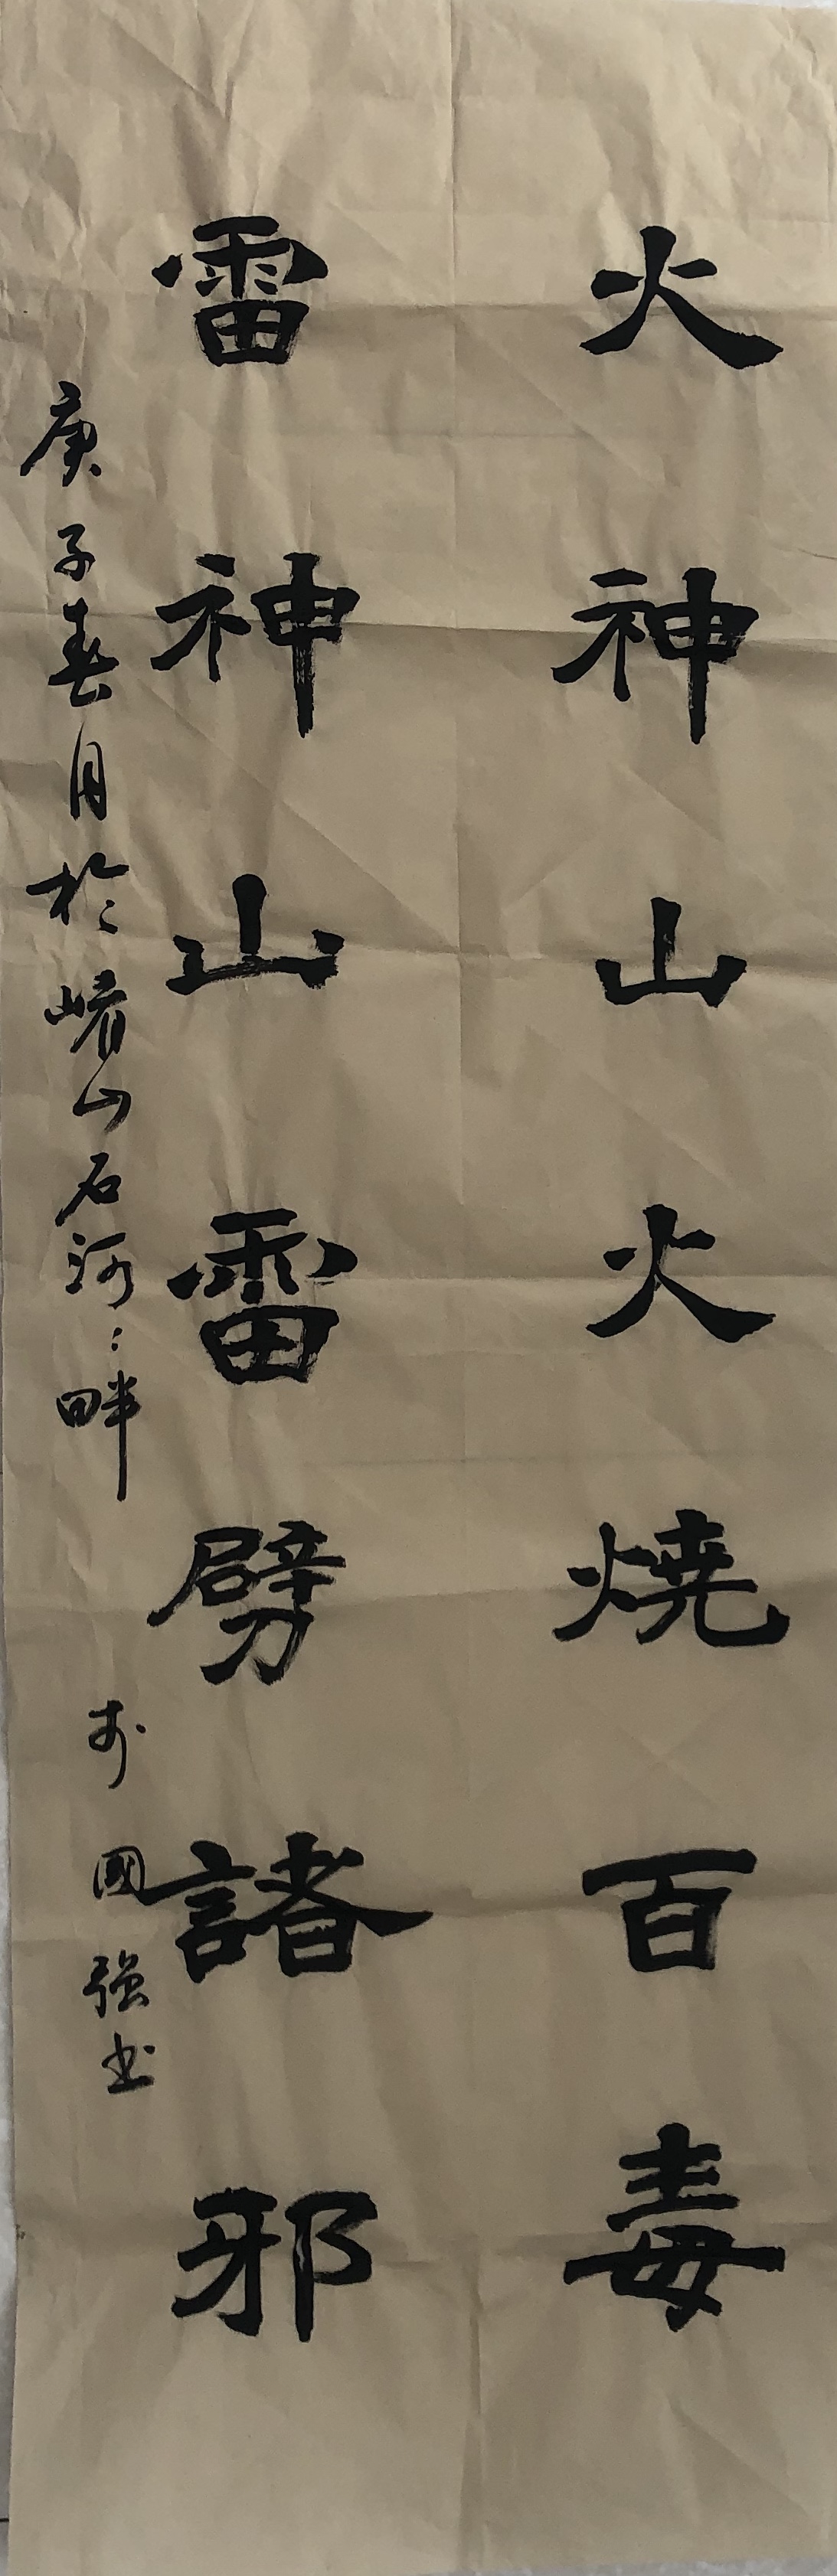 火神山火燒百毒
雷神山雷劈諸邪
庚子春月於嵖山石河〻畔 國强书